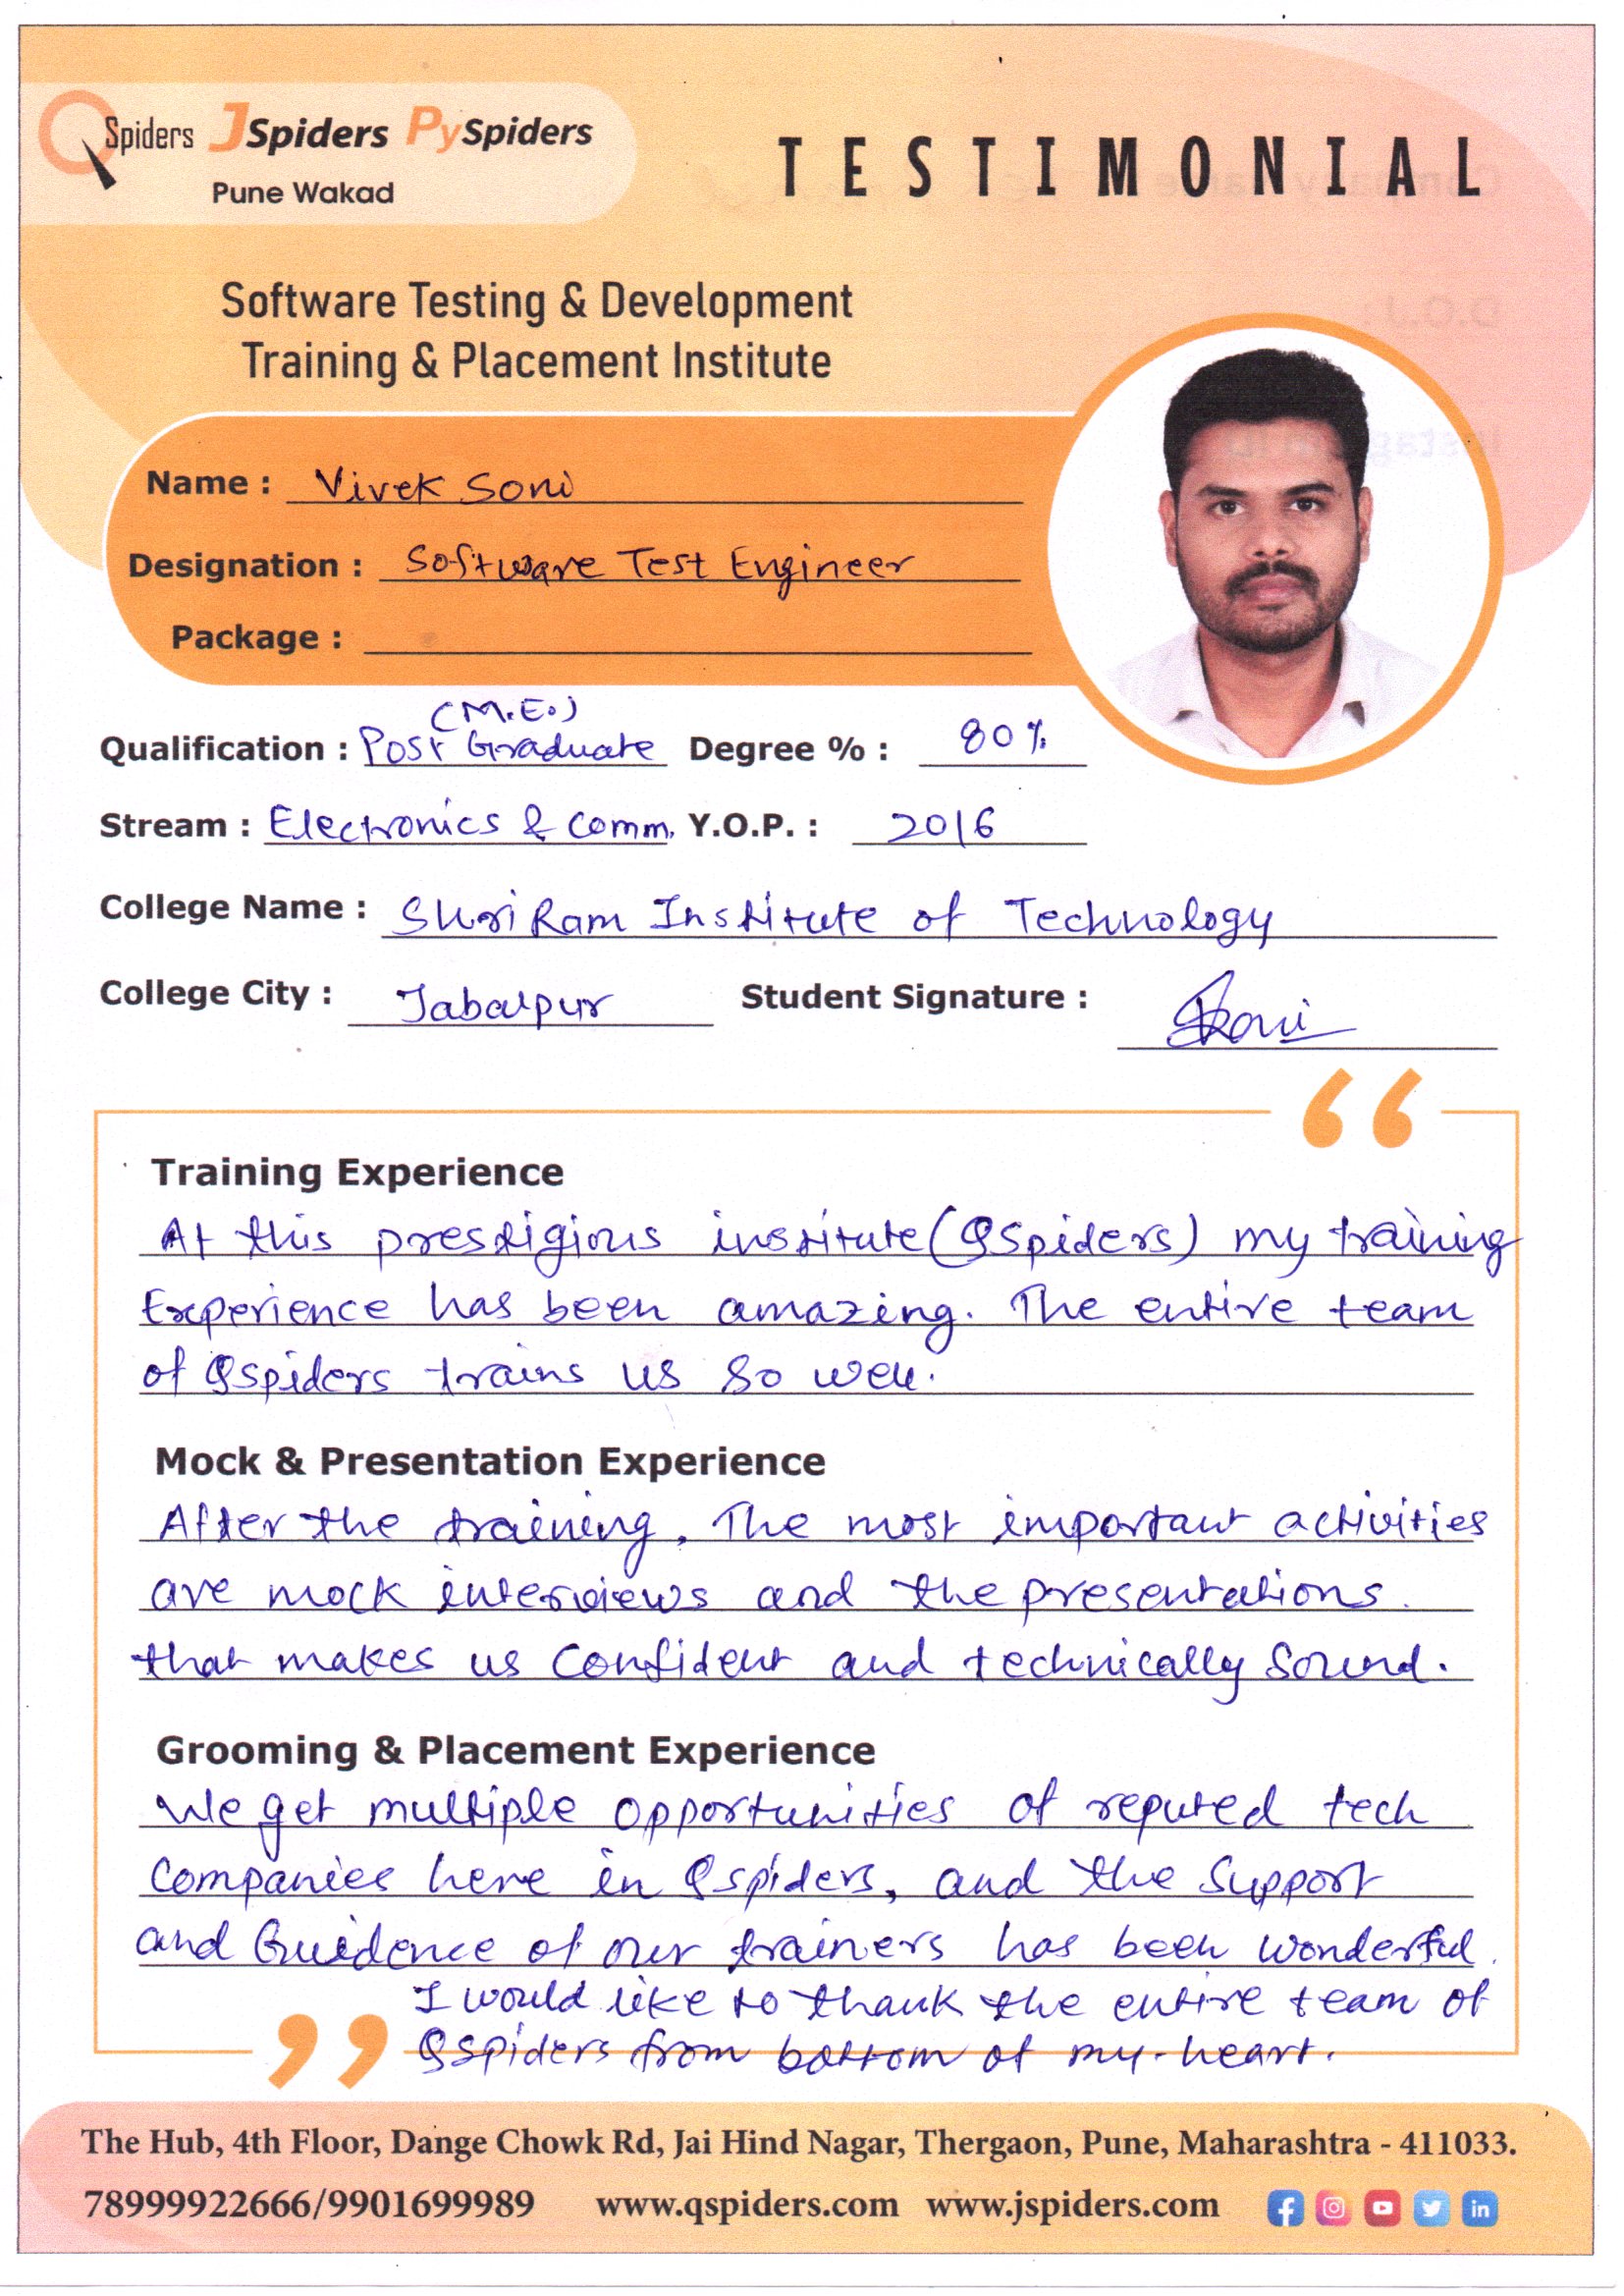 QSpiders JSpiders PySpiders
Pune Wakad
TESTIMONIAL
Software Testing & Development
Training & Placement Institute
Name : Vivek Soni
Designation : Software Test Engineer
Package :
(M.E.)
Qualification : Post Graduate Degree % : 80%
Stream : Electronics & Comm. Y.O.P. : 2016
College Name : Shri Ram Institute of Technology
College City : Jabalpur Student Signature : Soni
Training Experience
At this prestigious institute (QSpiders) my training
Experience has been amazing. The entire team
of Qspiders trains us so well.
Mock & Presentation Experience
After the training, The most important activities
are mock interviews and the presentations.
that makes us Confident and technically Sound.
Grooming & Placement Experience
We get multiple opportunities of reputed tech
Companies here in Qspiders, and the Support
and Guidence of our trainers has been wonderful.
I would like to thank the entire team of
Qspiders from bottom of my heart.
The Hub, 4th Floor, Dange Chowk Rd, Jai Hind Nagar, Thergaon, Pune, Maharashtra - 411033.
78999922666/9901699989 www.qspiders.com www.jspiders.com